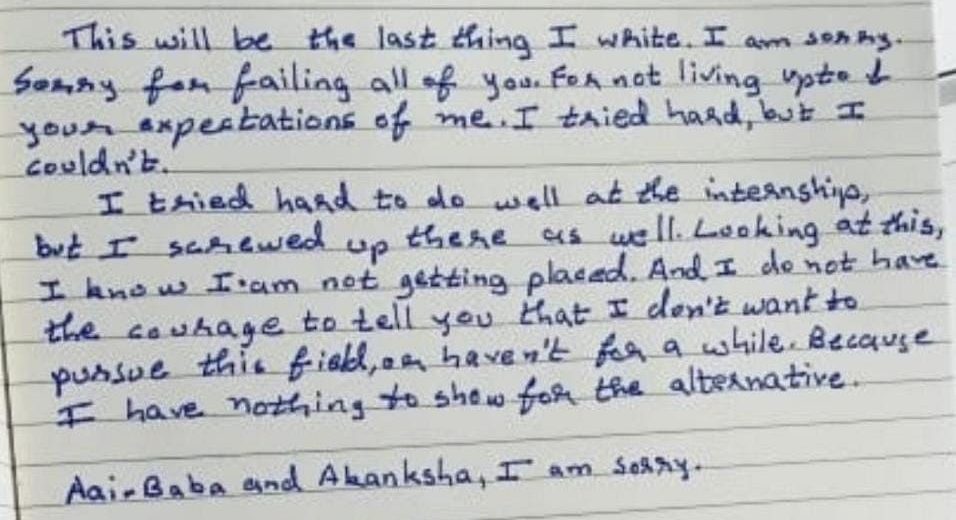 This will be the last thing I write. I am sorry.
Sorry for failing all of you. For not living upto
your expectations of me. I tried hard, but I
couldn't.
I tried hard to do well at the internship,
but I screwed up there as well. Looking at this,
I know I am not getting placed. And I do not have
the courage to tell you that I don't want to
pursue this field, or haven't for a while. Because
I have nothing to show for the alternative.
Aai-Baba and Akanksha, I am sorry.